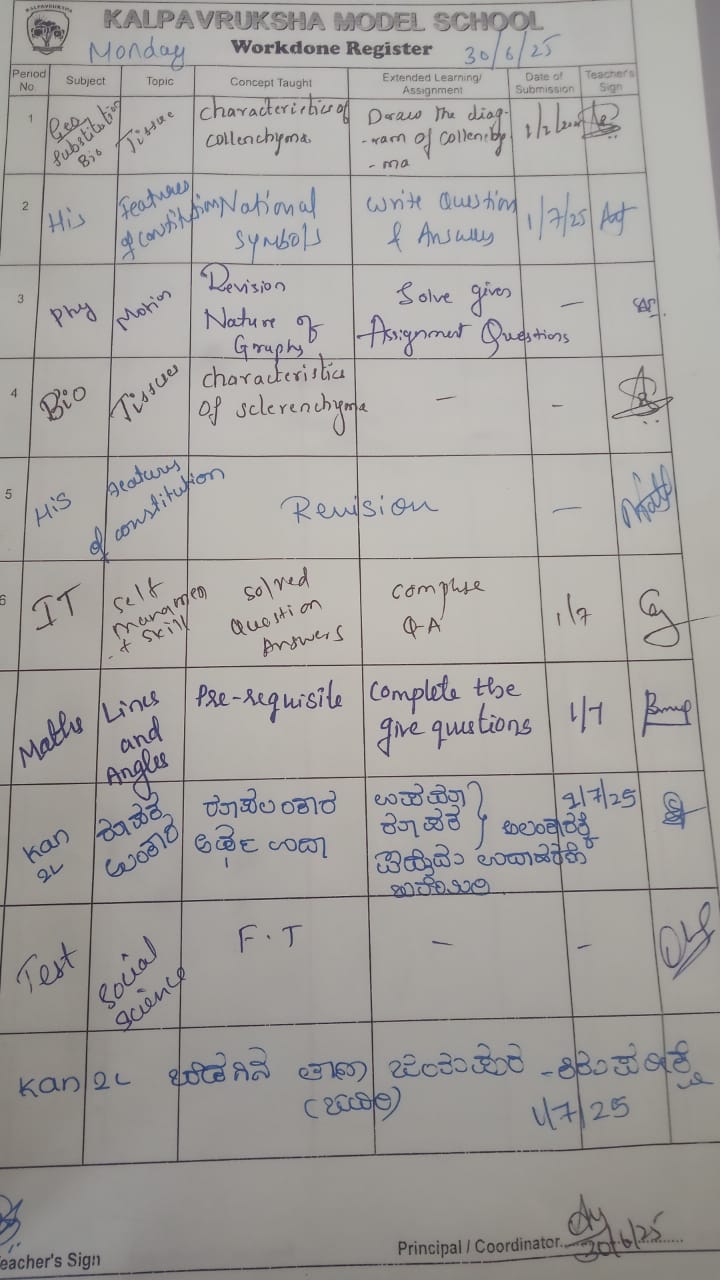 KALPAVRUKSHA
KALPAVRUKSHA MODEL SCHOOL
Monday Workdone Register 30/6/25
Period No. Subject Topic Concept Taught Extended Learning/ Assignment Date of Submission Teacher's Sign
1 Geo Substitution Bio Tissue characteristics of collenchyma Draw the diag-ram of collenchy-ma
2 His Features of constitution National symbols write Question & Answers 1/7/25
3 Phy Motion Revision Nature of Graphs Solve given Assignment Questions —
4 Bio Tissues characteristics of sclerenchyma — –
5 His features of constitution Revision —
6 IT Self managmen t skill solved Question Answers complete Q-A 1/7
Maths Lines and Angles Pre-requisite Complete the give questions 1/7
Kan 2L ರೂಪಕ ಅಲಂಕಾರ ಅರ್ಥ ಉದಾ ಉಪಮಾ ರೂಪಕ ಅಲಂಕಾರಕ್ಕೆ 1/7/25
Test Social Science F.T — –
Kan 2L 1/7/25
Teacher's Sign
Principal / Coordinator 30/6/25